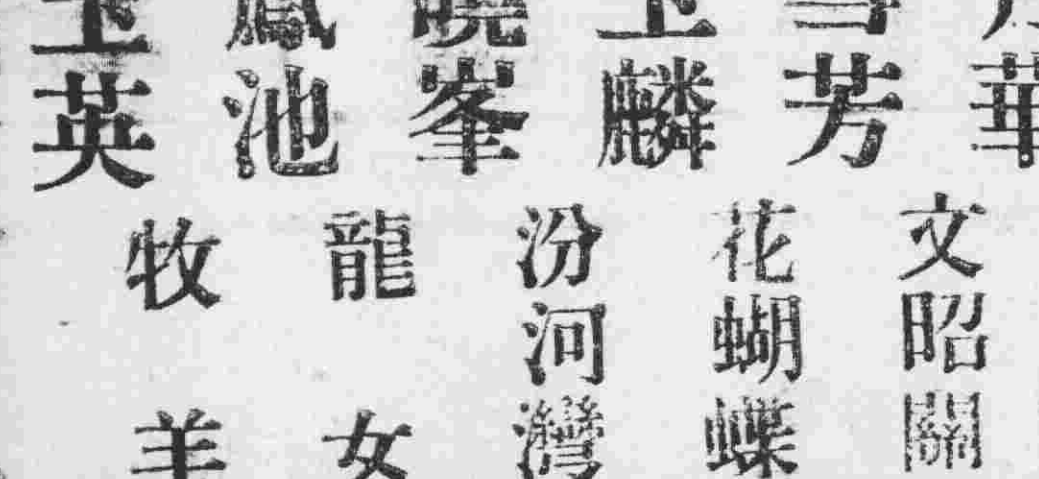 華
芳
麟
曉峯
鳳池
玉英
文昭關
花蝴蝶
汾河灣
龍女
牧羊